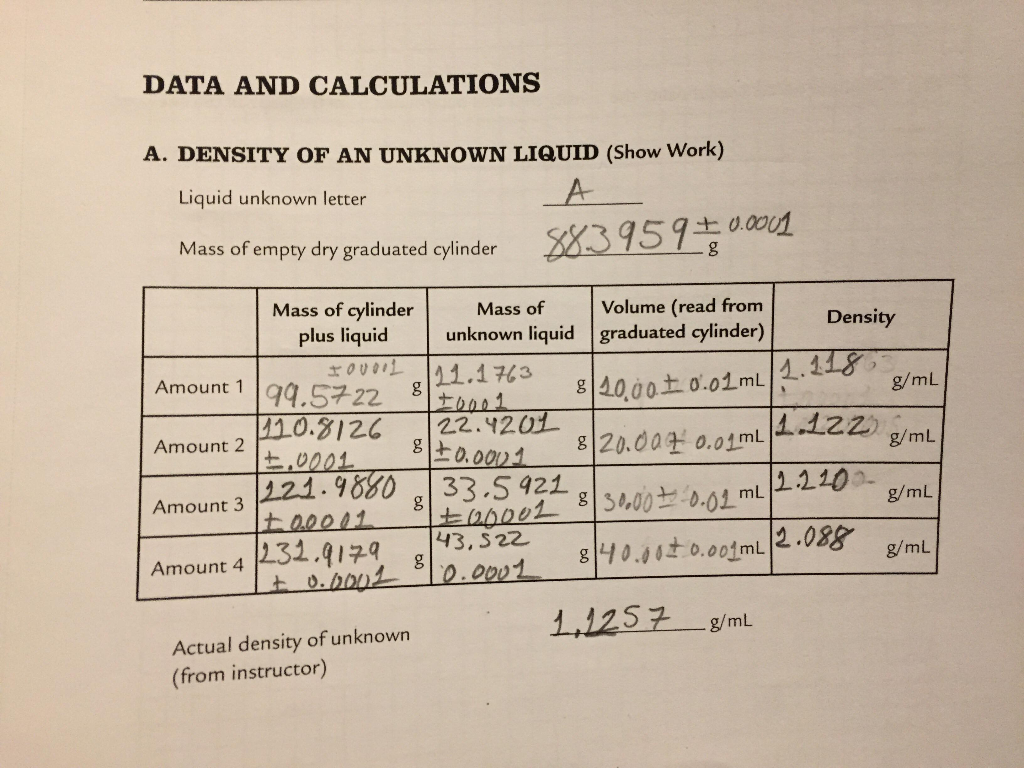 DATA AND CALCULATIONS
A. DENSITY OF AN UNKNOWN LIQUID (Show Work)
Liquid unknown letter A
Mass of empty dry graduated cylinder 883959 ± 0.0001 g
Mass of cylinder plus liquid
Mass of unknown liquid
Volume (read from graduated cylinder)
Density
Amount 1 99.5722 ±00001 g 11.1763 ±0001 g 10.00 ± 0.01 mL 1.118 g/mL
Amount 2 110.8126 ±.0001 g 22.4201 ±0.0001 g 20.00 ± 0.01 mL 1.122 g/mL
Amount 3 121.9880 ±0.0001 g 33.5921 ±0.0001 g 30.00 ± 0.01 mL g/mL
Amount 4 131.9179 ± 0.0001 g 43.522 0.0001 g 40.00 ± 0.001 mL g/mL
Actual density of unknown 1.1257 g/mL
(from instructor)